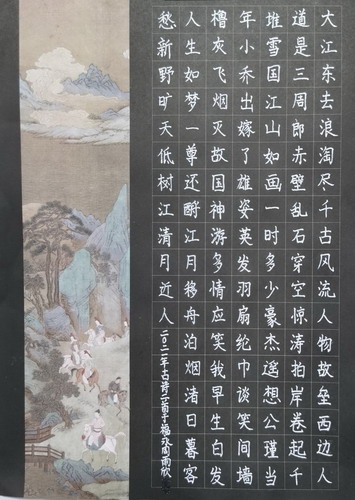 大江东去浪淘尽千古风流人物故垒西边人
道是三周郎赤壁乱石穿空惊涛拍岸卷起千
堆雪国江山如画一时多少豪杰遥想公瑾当
年小乔出嫁了雄姿英发羽扇纶巾谈笑间墙
橹灰飞烟灭故国神游多情应笑我早生白发
人生如梦一尊还酹江月移舟泊烟渚日暮客
愁新野旷天低树江清月近人
二〇二一年古诗二首于福永周雨欣